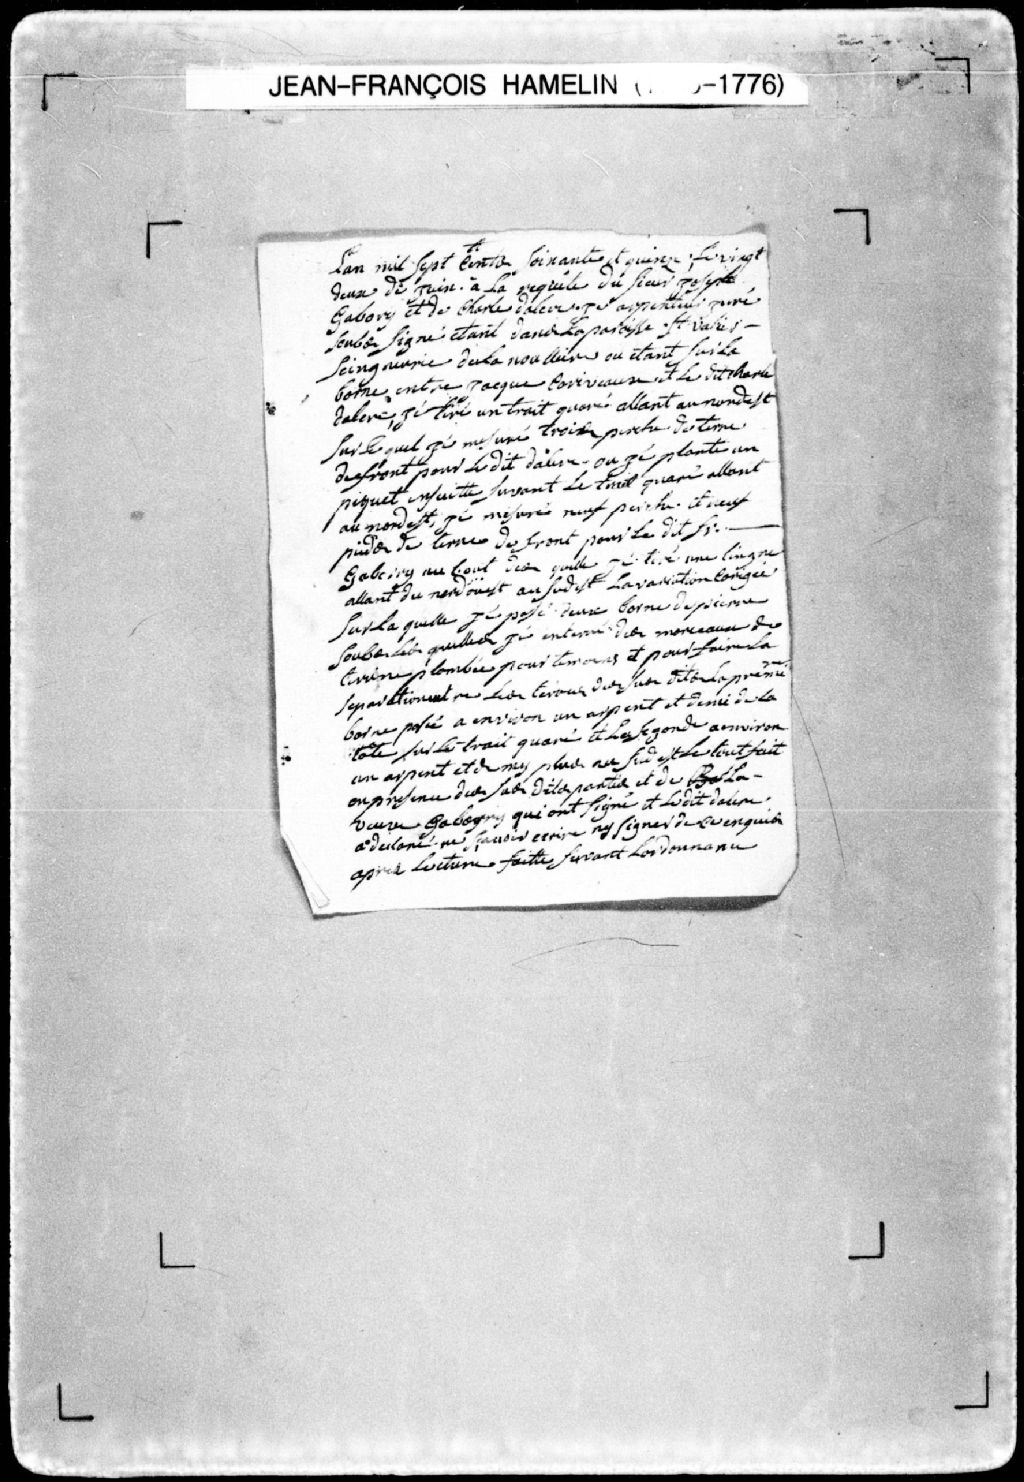 JEAN-FRANÇOIS HAMELIN ( -1776)
Lan mil sept Cents soixante et quinze, le vingt
deux de juin a La requête du sieur Joseph
Gabory et de Charle dalere je arpenteur juré
soubs signé etant dans La paroisse St valier
seingneurie de La noulliere ou etant sur La
borne entre jacque Coriveaux et Le dit charle
dalere, jé tiré un trait quaré allant au nordest
sur Le quel jé mesuré trois perche de terre
de front pour Le dit dalere ou jé planté un
piquet ensuitte suivant Le trait quaré allant
au nordest, jé mesuré neuf perche et neuf
pieds de terre de front pour Le dit sr.
Gabory au bout des quelle jé tiré une lingne
allant du nordouest au sudest La variation Corigée
sur La quelle jé posé deux borne de pierre
soubs Les quelles jé enterré des morceaux de
plombée pour temoins et pour faire La
separation entre Les terains des sus dits La premié
borne posé a environ un arpent et demi de La
tête sur Le trait quaré et La segonde a environ
un arpent et de my plus au sud est Le tout fait
en presence des sus dites parties et de La
veuve Gabory qui ont signé et Le dit dalere
a declaré ne sçavoir ecrire ny signer de ce enquis
apres Lecture faitte suivant Lordonnance